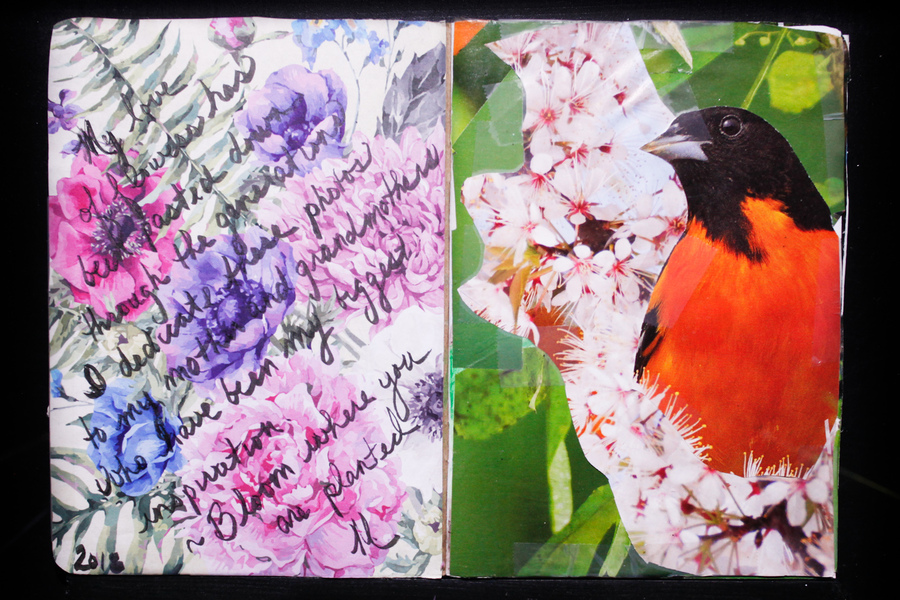 My love
of flowers has
been pasted down
through the generation
I dedicate these photos
to my mother and grandmothers
who have been my biggest
inspiration.
~ Bloom where you
are planted
2018